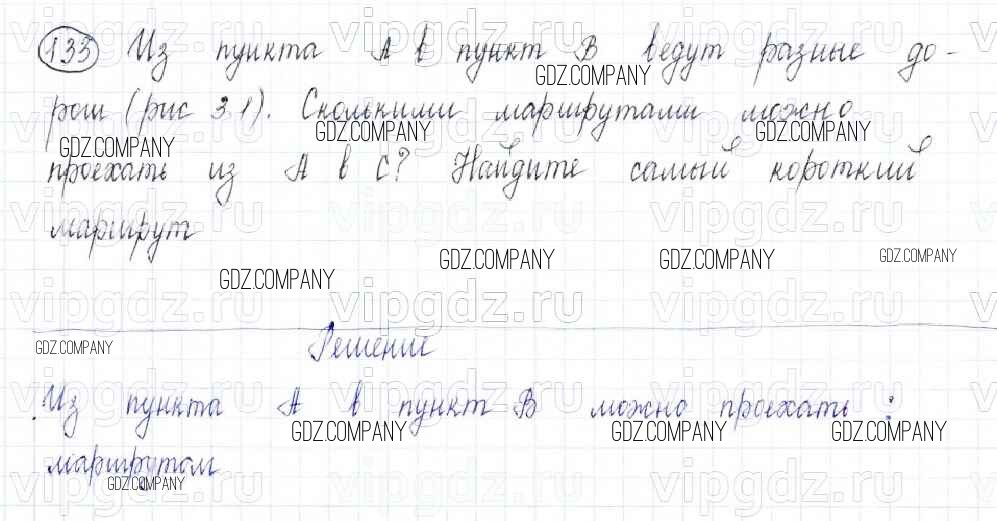 133 Из пункта А в пункт В ведут разные до-
роги (рис 31). Сколькими маршрутами можно
проехать из А в С? Найдите самый короткий
маршрут
Решение
Из пункта А в пункт В можно проехать :
маршрутом
vipgdz.ru
GDZ.COMPANY